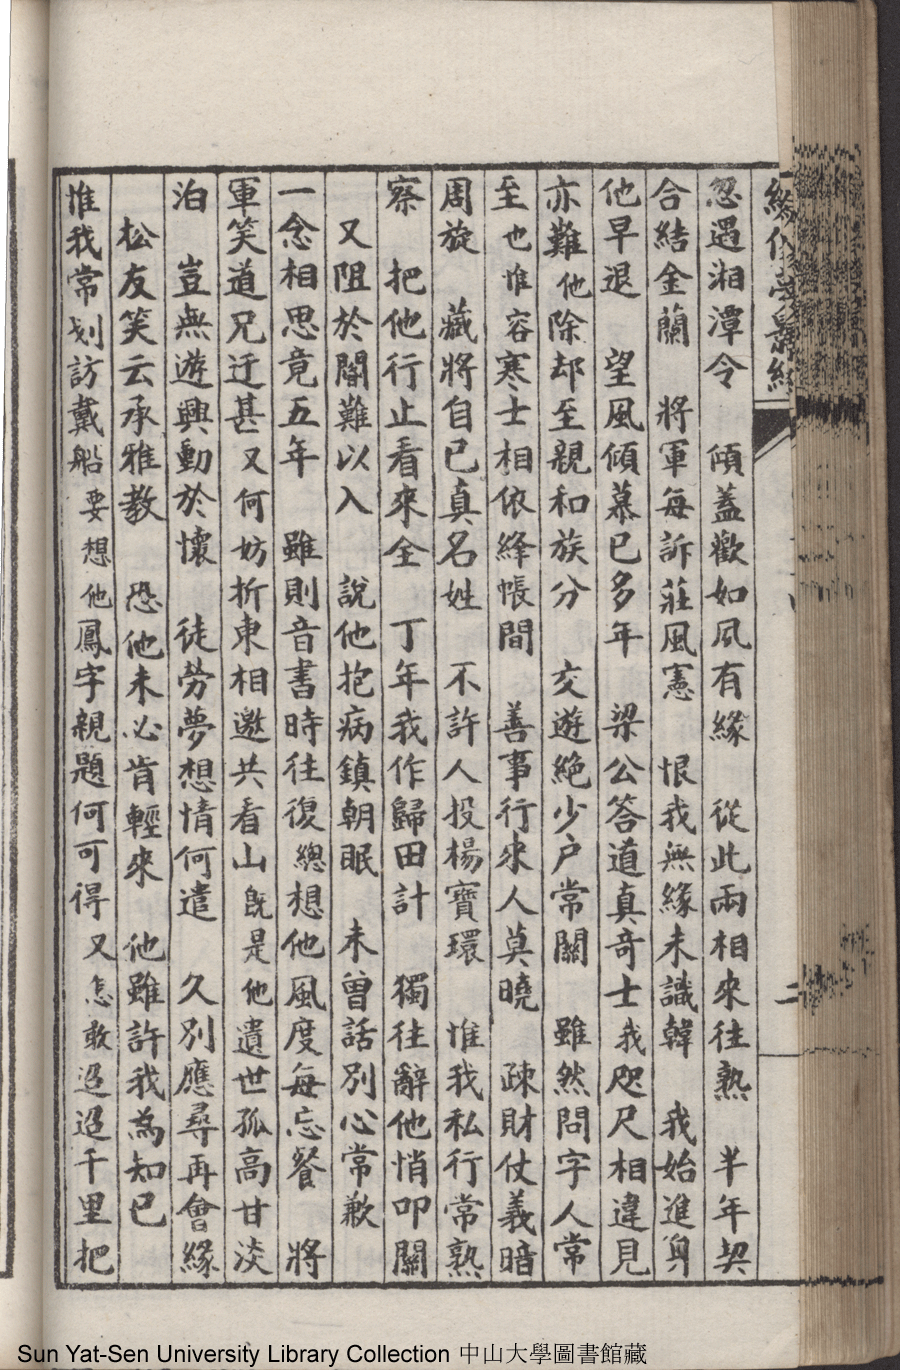 忽遇湘潭令　傾蓋歡如夙有緣　從此兩相來往熟　半年契
合結金蘭　將軍每訴莊風憲　恨我無緣未識韓　我始進身
他早退　望風傾慕已多年　梁公答道真奇士我咫尺相違見
亦難他除却至親和族分　交遊絕少户常關　雖然問字人常
至也惟容寒士相依絳帳間　善事行來人莫曉　疎財仗義暗
周旋　藏將自已真名姓　不許人投楊寶環　惟我私行常熟
察　把他行止看來全　丁年我作歸田計　獨往辭他悄叩關
又阻於閽難以入　說他抱病鎮朝眠　未曾話別心常歉
一念相思竟五年　雖則音書時往復總想他風度每忘餐　將
軍笑道兄迂甚又何妨折柬相邀共看山既是他遺世孤高甘淡
泊　豈無遊興動於懷　徒勞夢想情何遣　久別應尋再會緣
松友笑云承雅教　恐他未必肯輕來　他雖許我為知已
惟我常划訪戴船要想他鳳字親題何可得　又怎敢迢迢千里把
二
Sun Yat-Sen University Library Collection 中山大學圖書館藏